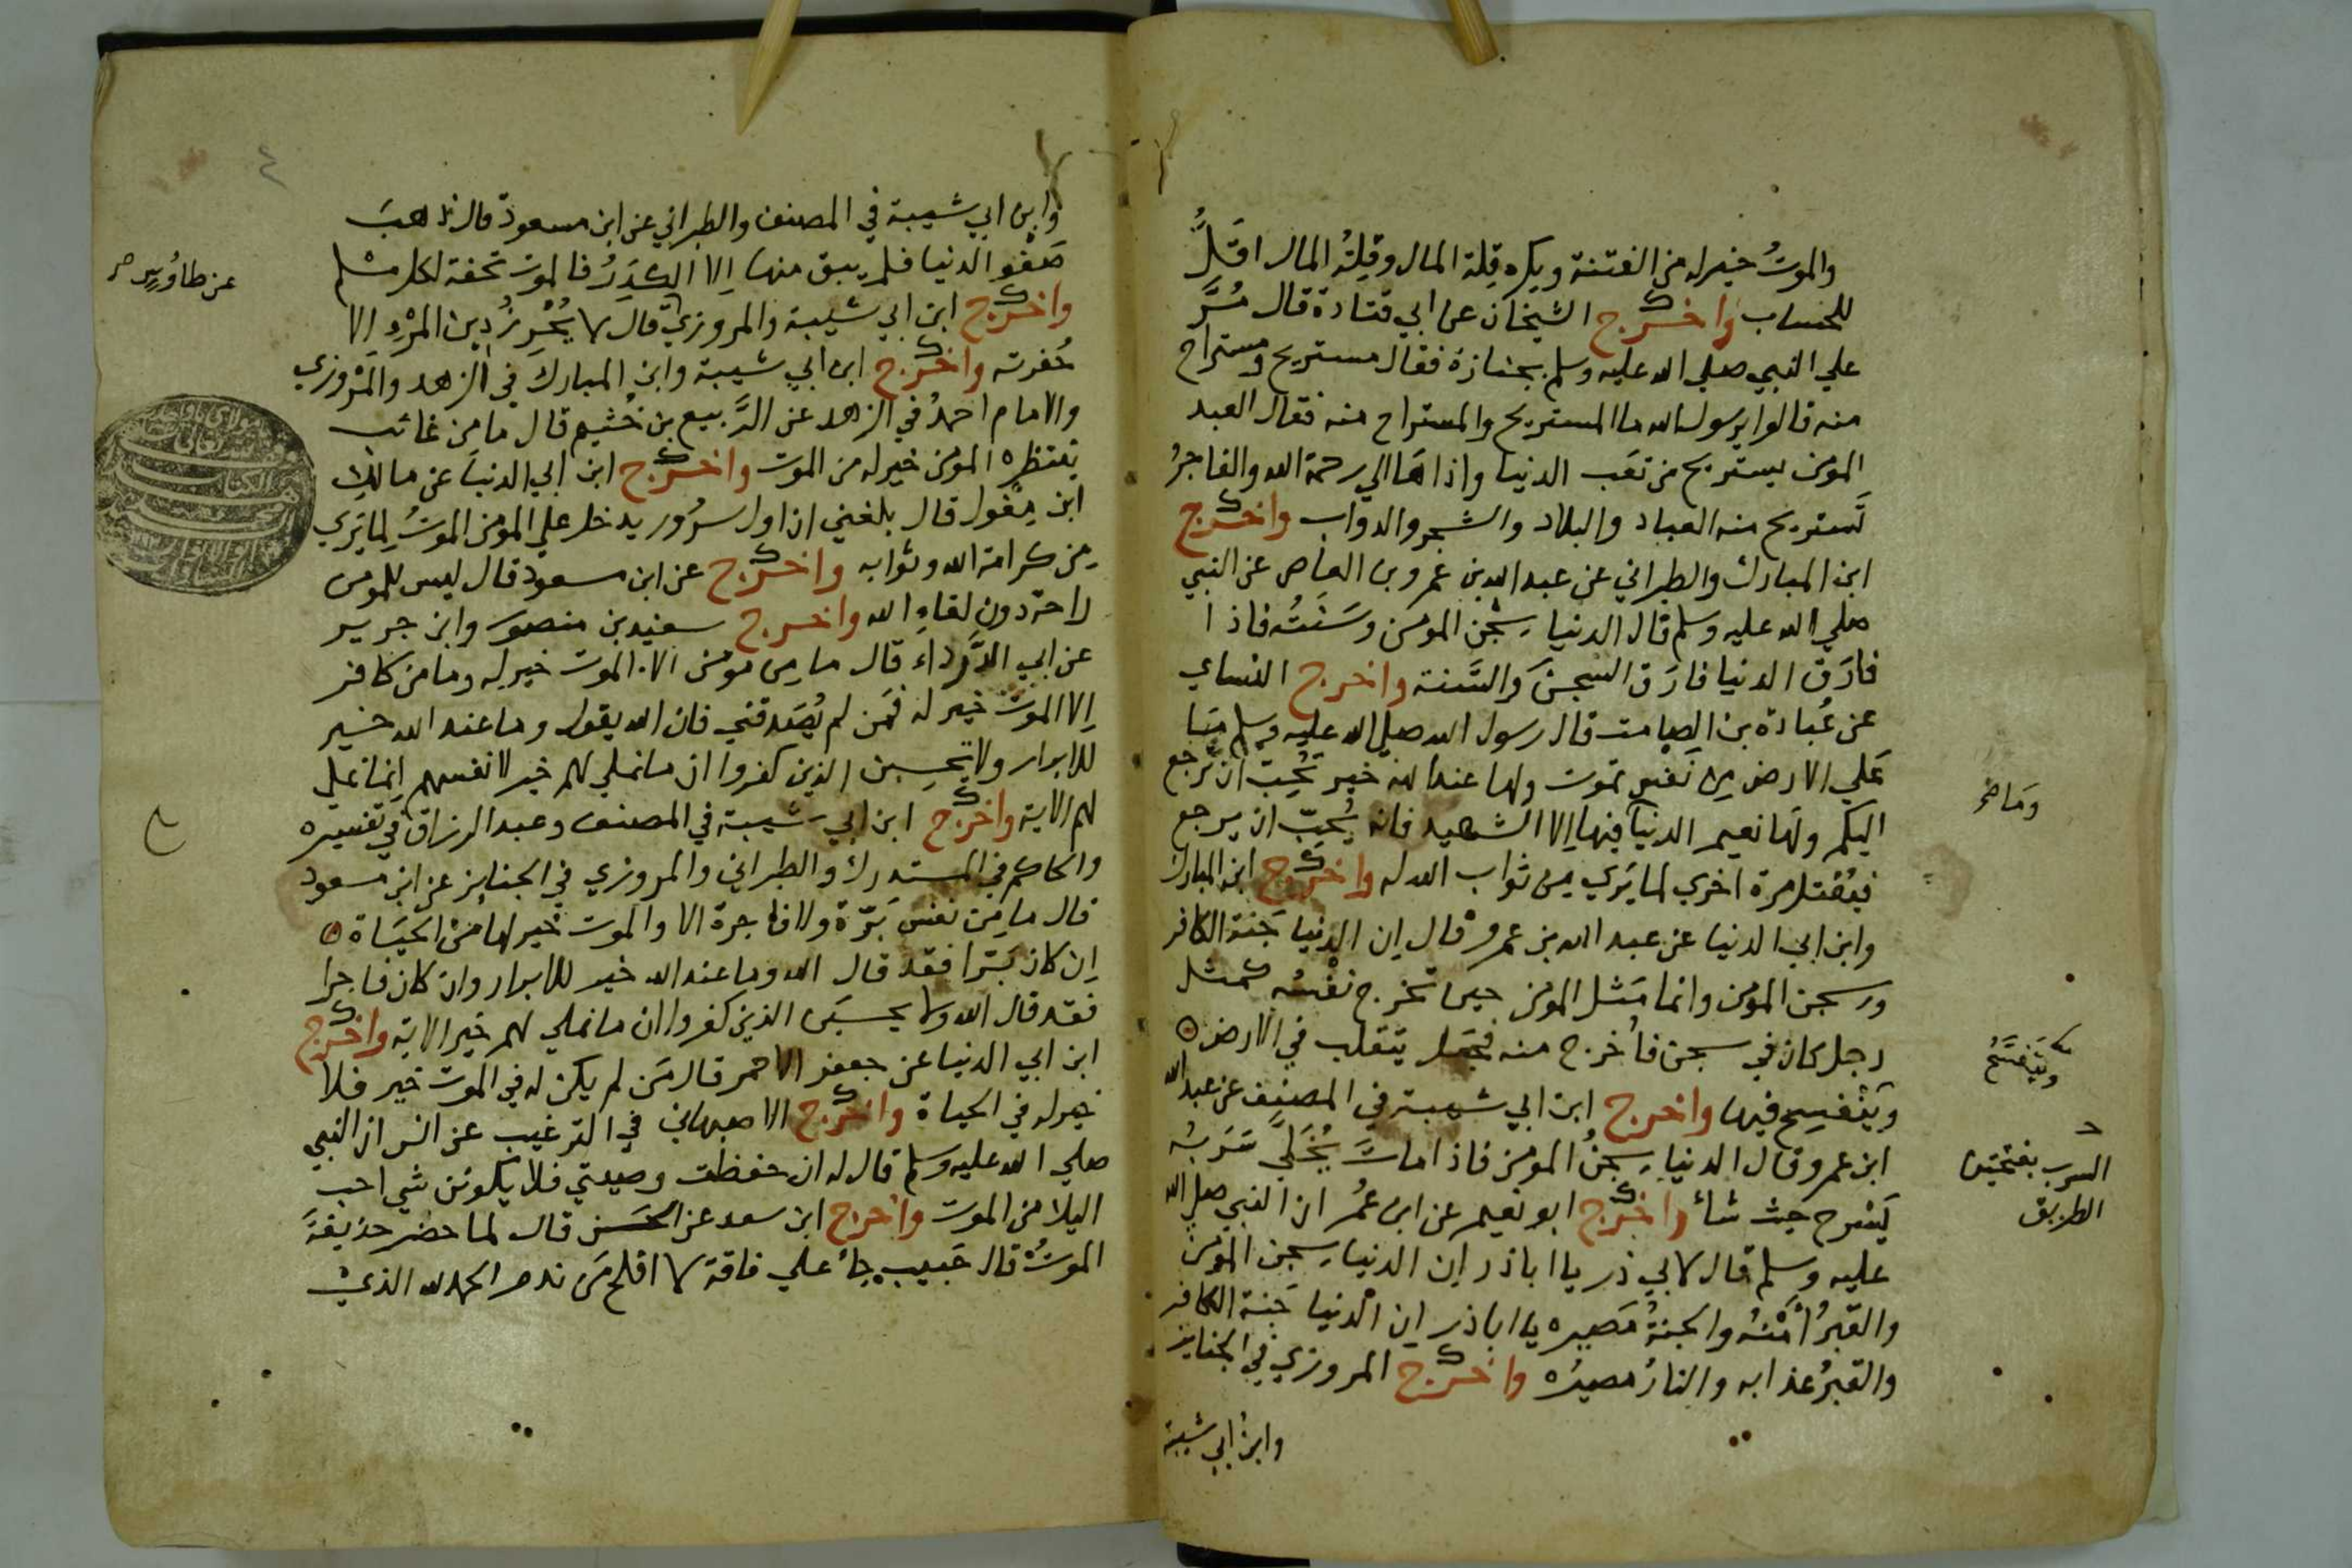 والموتُ خير له من الفتنة ويكره قِلة المال وقِلةُ المال اقَلُّ
للحساب واخرج الشيخان عن ابي قتادة قال مُرَّ
علي النبي صلي الله عليه وسلم بجنازة فقال مستريح ومستراح
منه قالوا يرسول الله ما المستريح والمستراح منه فقال العبد
المؤمن يستريح من تعَب الدنيا واذاها الي رحمة الله والفاجرُ
تَستريح منه العباد والبلاد والشجر والدواب واخرج
ابن المبارك والطبراني عن عبد الله بن عمرو بن العاص عن النبي
صلي الله عليه وسلم قال الدنيا سِجن المومن وسَنَتُه فاذا
فارَق الدنيا فارَق السجنَ والسَّنة واخرج النساي
عن عُبادة بن الصامت قال رسول الله صلي الله عليه وسلم ما
عَلي الارض مِن نَفس تموت ولها عند الله خير تُحِبّ ان ترجع
وَما
اليكم ولَها نعيم الدنيا فيها اِلا الشهيد فانه يُحِبّ ان يرجع
فيُقتل مرة اخري لما يَري مِن ثواب الله له واخرج ابن المبارك
وابن ابي الدنيا عن عبد الله بن عمرو قال اِن الدنيا جَنة الكافر
وسجن المومن وانما مَثل المومن حين تخرج نفْسُه كمثل
رجل كان في سجن فاُخرج منه فجَعل يتقلب في الارض
ويَتفسَّحُ
ويَتفسح فيها واخرج ابن ابي شيبة في المصنف عن عبد الله
ابن عمرو قال الدنيا سِجنُ المومن فاذا ماتَ يُخَلَّي سَرَبُه
السرب بفتحتين
الطريق
يَسْرح حيث شاءَ واخرج ابو نعيم عن ابن عمُر ان النبي صلي الله
عليه وسلم قال لابي ذر يا اباذر اِن الدنيا سِجن المؤمن
والقبرُ اَمْنُه والجنةُ مَصيره يا اباذر ان الدنيا جَنة الكافر
والقبرُ عذابه والنارُ مصيرُه واخرج المروزي في الجنايز
وابن ابي شيبة
٤
وابن ابي شيبة في المصنف والطبراني عن ابن مسعود قال ذهبَ
صَفْو الدنيا فلم يبق منها اِلا الكَدَرُ فالموت تحفة لكل مسلم
عن طاوُسٍ
واخرج ابن ابي شيبة والمروزي قال لا يُحْرِزُ دِينَ المرْءِ اِلا
حُفرته واخرج ابن ابي شيبة وابن المبارك في الزهد والمَرْوزي
والامام احمدُ في الزهد عن الرَّبيع بن خُثيم قال ما مِن غائب
ينتظره المومن خير له من الموت واخرج ابن ابي الدنيا عن مالك
ابن مِغْول قال بلغني ان اول سرُور يدخل علي المومن الموتُ لِما يَري
مِن كرامة الله وثوابه واخرج عن ابن مسعود قال ليس للمومن
راحة دون لقاءِ الله واخرج سعيد بن منصور وابن جرير
عن ابي الدَّرداءَ قال ما مِن مومن الا الموت خير له وما من كافر
اِلا الموت خير له فمَن لم يُصَدقني فان الله يقول وما عند الله خير
للابرار ولا تحسِبن الذين كفروا ان ما نملي لهم خير لانفسهم اِنما نملي
لهم الاية واخرج ابن ابي شيبة في المصنف وعبد الرزاق في تفسيره
والحاكم في المستدرك والطبراني والمروزي في الجنايز عن ابن مسعود
قال ما مِن نفس بَرّة ولا فاجرة الا والموت خير لها مِن الحَيَاة
اِن كان بَرا فقد قال الله وما عند الله خير للابرار وان كان فاجرا
فقد قال الله ولا يحسبَن الذين كفروا ان ما نملي لهم خير الاية واخرج
ابن ابي الدنيا عن جعفر الاحمر قال مَن لم يكن له في الموت خير فلا
خير له في الحياة واخرج الاصبهاني في الترغيب عن انس ان النبي
صلي الله عليه وسلم قال له ان حفظت وصيتي فلا يكونن شي احب
اليك من الموت واخرج ابن سعد عن الحَسن قال لما حضر حذيفةَ
الموتُ قال حَبيب جاءَ علي فاقة لا افلح مَن ندم الحمد لله الذي